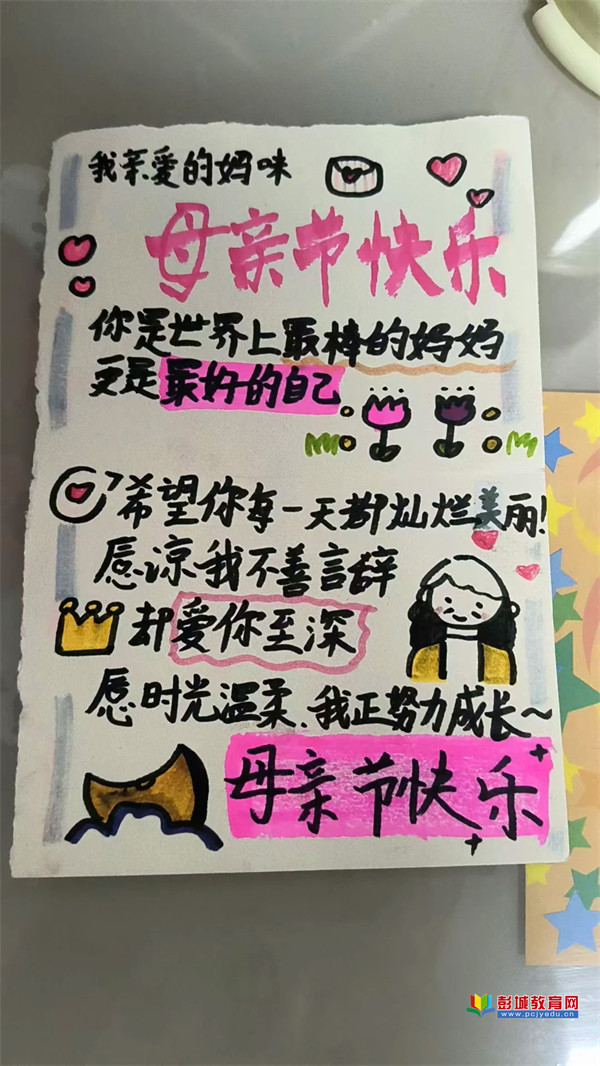 我亲愛的妈咪
母亲节快乐
你是世界上最棒的妈妈
更是最好的自己
希望你每一天都灿烂美丽!
愿凉我不善言辞
却爱你至深
愿时光温柔、我正努力成长~
母亲节快乐
彭城教育网
www.pcjyedu.cn